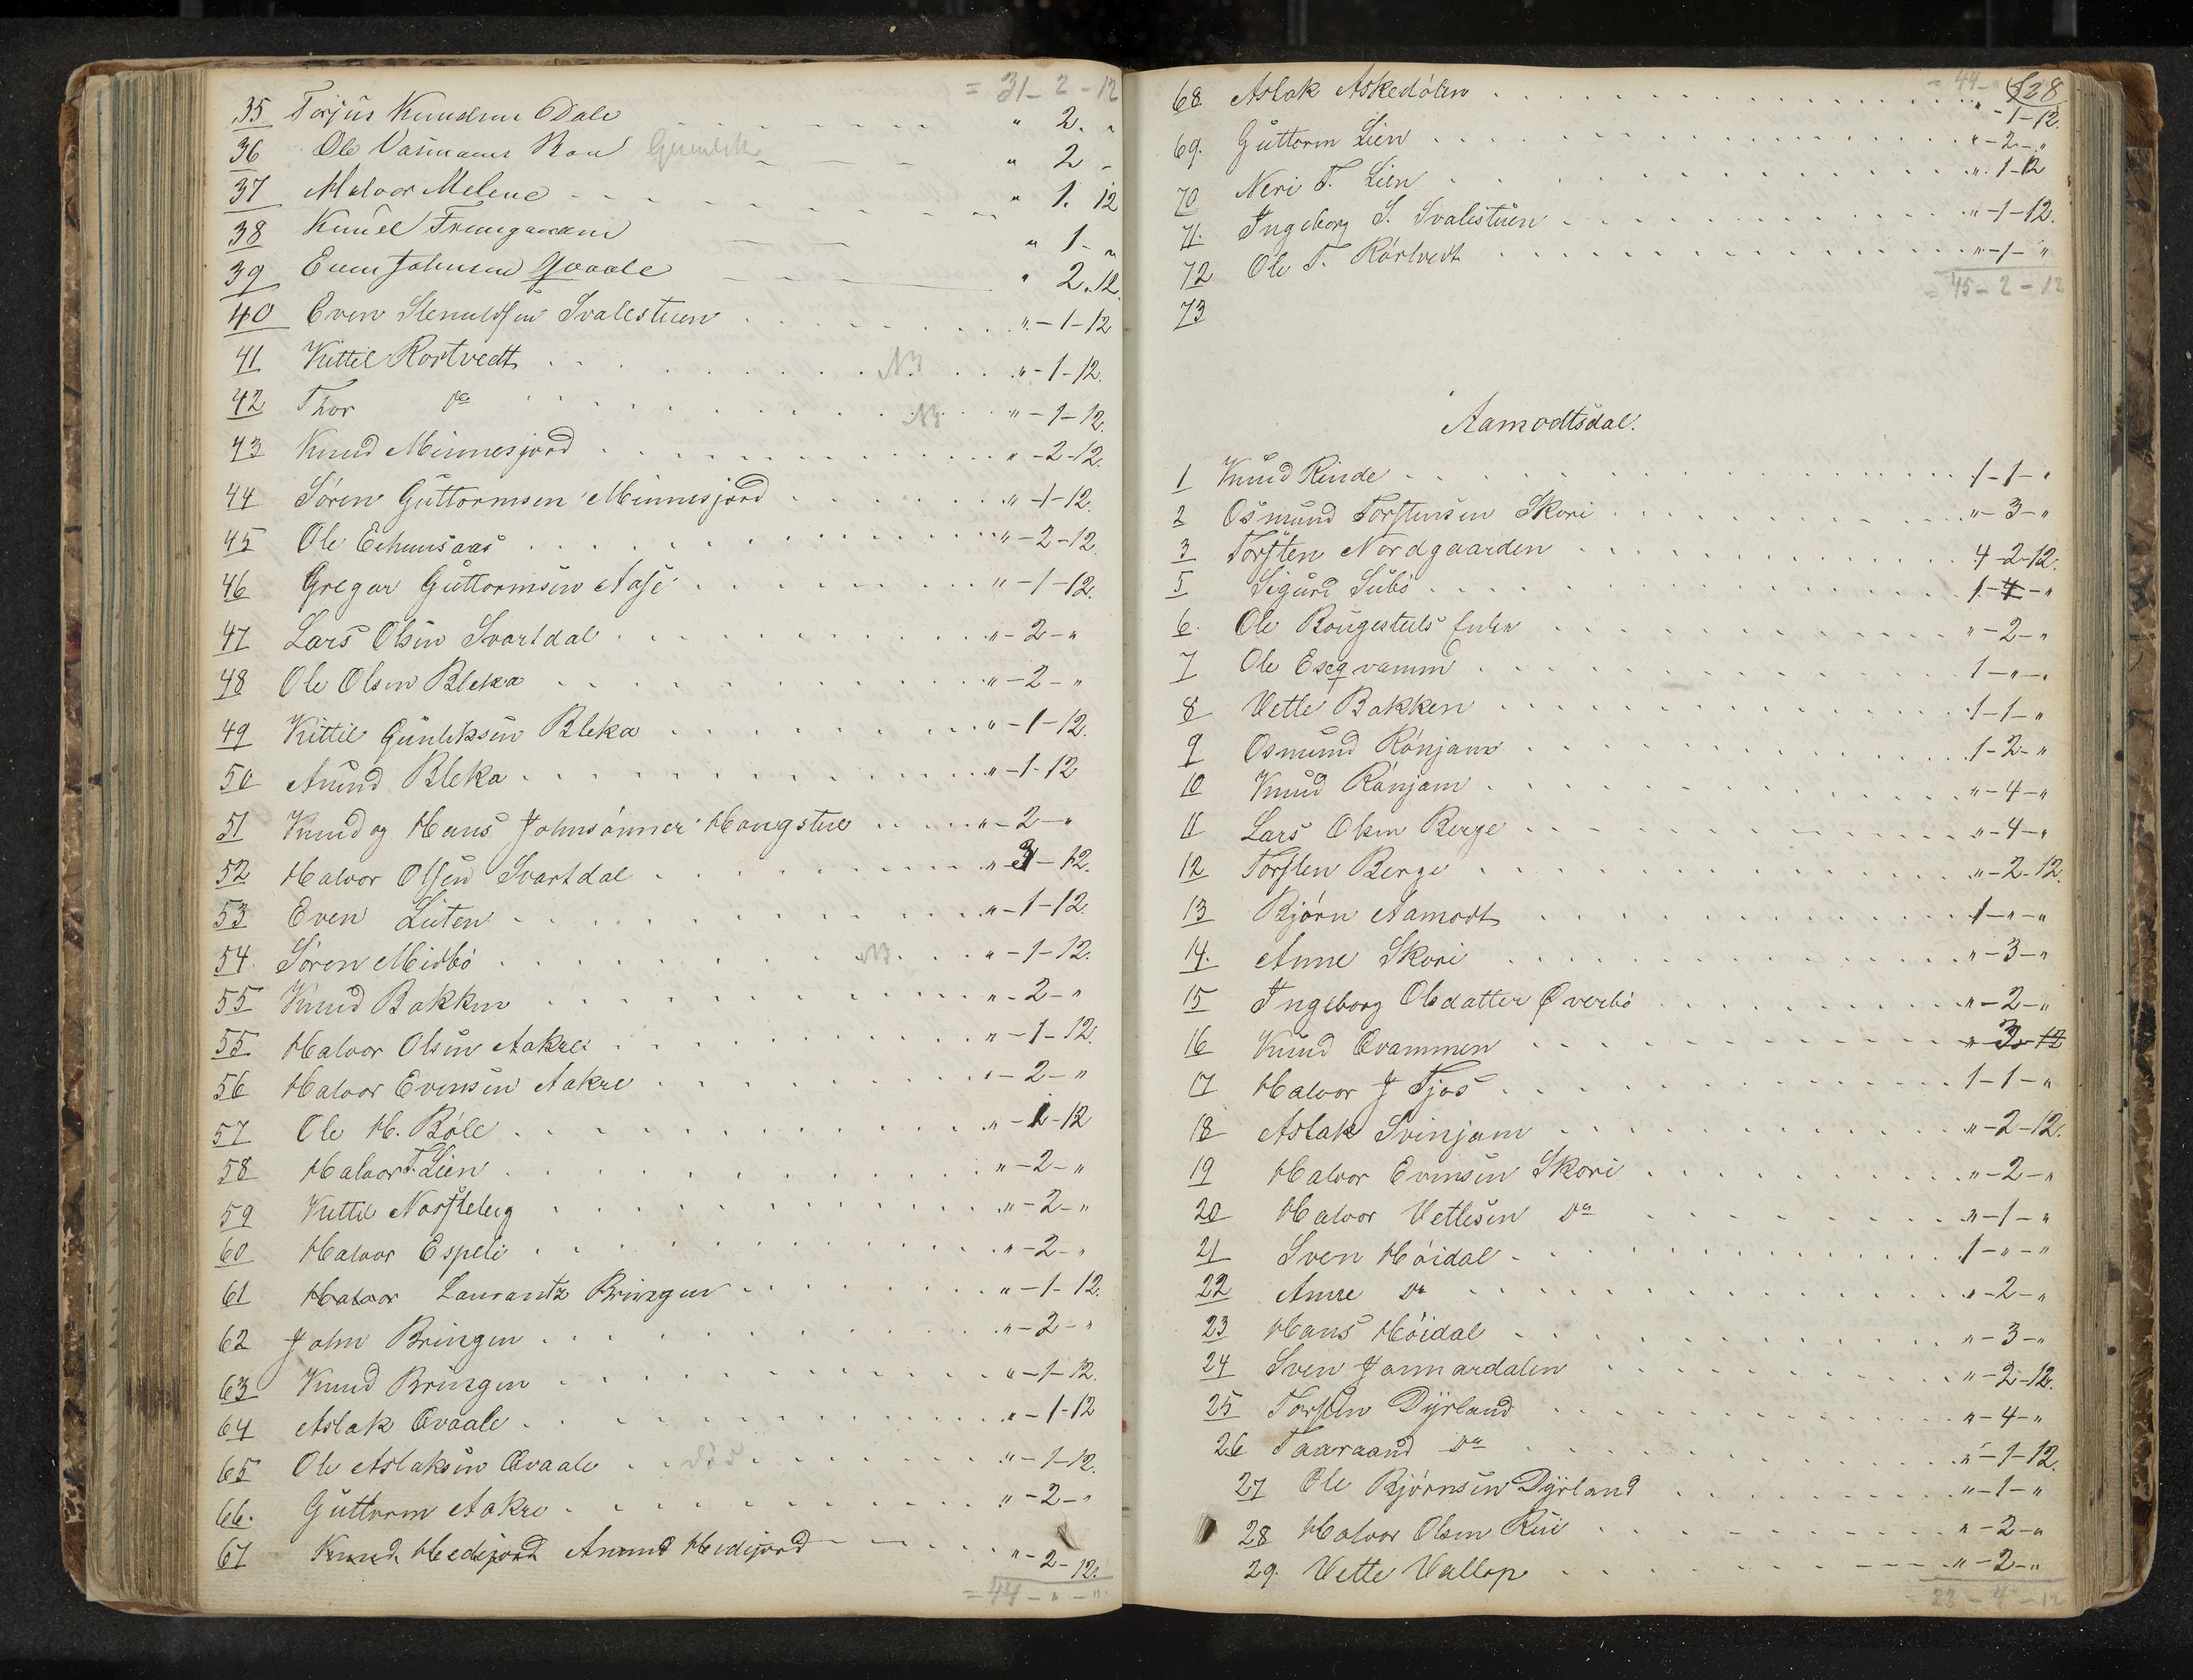 = 31 - 2 - 12
35 Torjus Knudsen Dale " 2. "
36 Ole Vasmaans Roa " 2 -
37 Halvor Melene " 1. 12
38 Knud " 1 - "
39 Even Johnsen Qvaale " 2. 12.
40 Even Stenuldsen Svalestuen " - 1 - 12
41 Kittil Rortvedt NB " - 1 - 12.
42 Thor do NB " - 1 - 12.
43 Knud Minnesjord " - 2 - 12.
44 Sören Guttormsen Minnesjord " - 1 - 12.
45 Ole " - 2 - 12.
46 Gregar Guttormsen Aase " - 1 - 12.
47 Lars Olsen Svartdal " - 2 - "
48 Ole Olsen Bleka " - 2 - "
49 Kittil Gunleksen Bleka " - 1 - 12.
50 Aanund Bleka " - 1 - 12
51 Knud og Hans Johnsönner Haugstul " - 2 - "
52 Halvor Olsen Svartdal " - 3 - 12.
53 Even Liiten " - 1 - 12.
54. Sören Midbö NB " - 1 - 12.
55 Knud Bakken " - 2 - "
55 Halvor Olsen Aakre " - 1 - 12.
56 Halvor Evensen Aakre " - 2 - "
57 Ole H. Böle " - 1 - 12
58 Halvor T. Lien " - 2 - "
59 Kittil Norsteberg " - 2 - "
60 Halvor Espeli " - 2 - "
61 Halvor Laurantz Bringen " - 1 - 12.
62 John Bringen " - 2 - "
63 Knud Bringen " - 1 - 12.
64 Aslak Qvaale " - 1 - 12
65 Ole Aslaksen Qvaale död " - 1 - 12.
66. Guttorm Aakre " - 2 - "
67 Knud Hedejord Anund Heidejord " - 2 - 12.
= 44 - " - "
= 44 - 128
68 Aslak Askedalen " - 1 - 12.
69. Guttorm Lien " - 2 - "
70 Neri T. Lien " - 1 - 12
71. Ingeborg S. Svalestuen " - 1 - 12.
72 Ole T. Rörtvedt " - 1 - "
= 45 - 2 - 12
73
Aamodtsdal.
1 Knud Rinde 1 - 1 - "
2 Osmund Torstensen Skori " - 3 - "
3 Torsten Nordgaarden 4 - 2 - 12.
5 Sigurd Subö 1 - 4 - "
6. Ole Bougestuls Enke " - 2 - "
7 Ole 1 - " - "
8 Vetle Bakken 1 - 1 - "
9 Osmund Rönjam 1 - 2 - "
10 Knud Rönjam " - 4 - "
11 Lars Olsen Berge " - 4 - "
12 Torsten Berge " - 2 - 12.
13 Björn Aamodt 1 - " - "
14. Anne Skori " - 3 - "
15 Ingeborg Olsdatter Överbö " - 2 - "
16 Knud Qvammen " - 3 - 12
17 Halvor J Tjos 1 - 1 - "
18 Aslak Svinjam " - 2 - 12.
19 Halvor Evensen Skori " - 2 - "
20 Halvor Vetlesen do " - 1 - "
21 Sven Höidal 1 - " - "
22 Anne do " - 2 - "
23 Hans Höidal " - 3 - "
24 Sven Jonnardalen " - 2 - 12.
25 Torsten Dÿrland " - 4 - "
26 Taaraand do " - 1 - 12.
27 Ole Björnsen Dÿrland " - 1 - "
28 Halvor Olsen Rui " - 2 - "
29. Vetle Vallop " - 2 - "
22 - 4 - 12